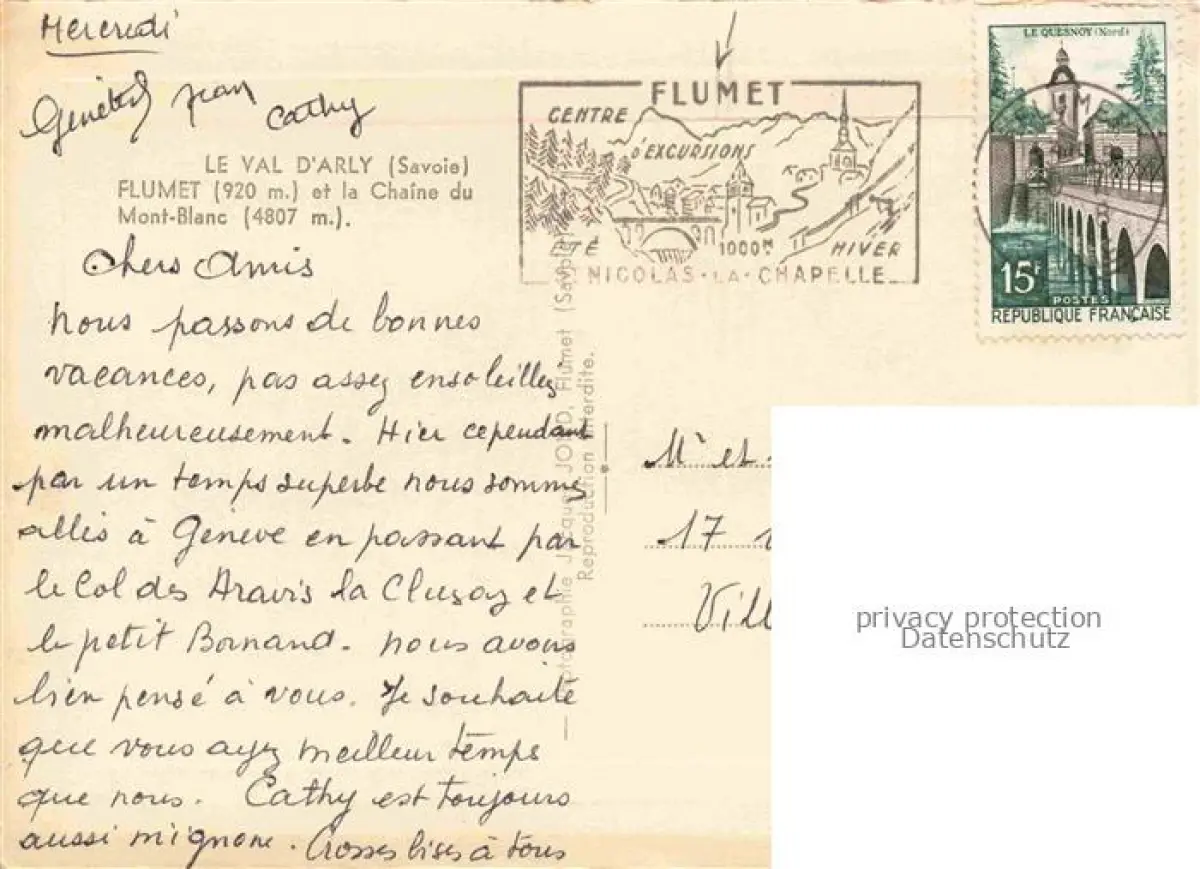 Mercredi
Jean
Cathy
LE VAL D'ARLY (Savoie)
FLUMET (920 m.) et la Chaîne du
Mont-Blanc (4807 m.).
Chers Amis
Nous passons de bonnes
vacances, pas assez ensoleillées
malheureusement. Hier cependant
par un temps superbe nous sommes
allés à Genève en passant par
le Col des Aravis la Clusaz et
le petit Bornand. Nous avons
bien pensé à vous. Je souhaite
que vous ayez meilleur temps
que nous. Cathy est toujours
aussi mignone. Grosses bises à tous
FLUMET
CENTRE
D'EXCURSIONS
ÉTÉ
1000M
HIVER
NICOLAS-LA-CHAPELLE
LE QUESNOY (Nord)
15F
POSTES
RÉPUBLIQUE FRANÇAISE
Photographie Jacques Flumet (Savoie)
Reproduction interdite.
Mr et
17
Vill
privacy protection
Datenschutz